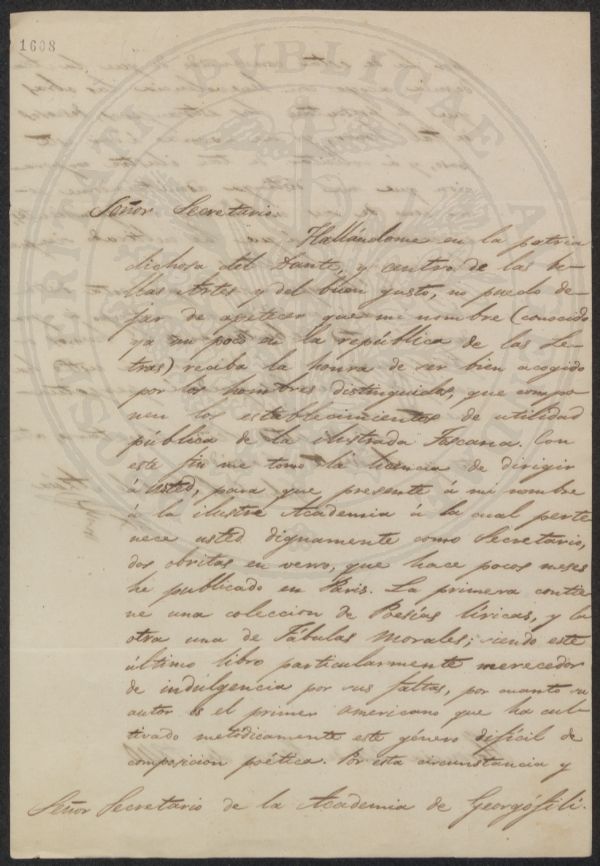 1608
Señor Secretario.
Hallándome en la patria
dichosa del Dante, y centro de las be-
llas Artes y del buen gusto, no puedo de-
jar de apetecer que mi nombre (conocido
ya un poco en la república de las Le-
tras) reciba la honra de ser bien acogido
por los hombres distinguidos, que compo-
nen los establecimientos de utilidad
pública de la ilustrada Toscana. Con
este fin me tomo la licencia de dirigir
á usted, para que presente á mi nombre
á la ilustre Academia á la cual perte
nece usted dignamente como Secretario,
dos obritas en verso, que hace pocos meses
he publicado en Paris. La primera contie
ne una coleccion de Poesías líricas, y la
otra una de Fábulas Morales; siendo este
último libro particularmente merecedor
de indulgencia por sus faltas, por cuanto su
autor es el primer Americano que ha cul-
tivado metódicamente este género difícil de
composicion poética. Por esta circunstancia y
Señor Secretario de la Academia de Georgófili.